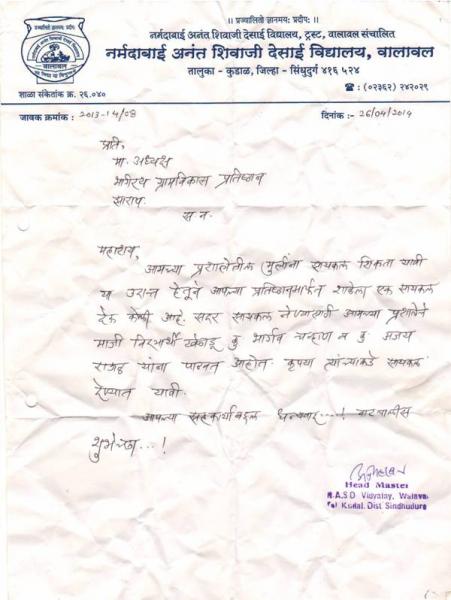 ॥ प्रज्वालितो ज्ञानमयः प्रदीपः ॥
नर्मदाबाई अनंत शिवाजी देसाई विद्यालय, ट्रस्ट, वालावल संचालित
नर्मदाबाई अनंत शिवाजी देसाई विद्यालय, वालावल
तालुका - कुडाळ, जिल्हा - सिंधुदुर्ग ४१६ ५२४
शाळा संकेतांक क्र. २६.०४०
☎ : (०२३६२) २४२०२९
जावक क्रमांक : 2013-14/08
दिनांक :- 26/04/2014
प्रति,
मा. अध्यक्ष
भगिरथ ग्रामविकास प्रतिष्ठान
महाशय,
आमच्या प्रशालेतील मुलींना सायकल शिकता यावी
या उदात्त हेतूने आपल्या प्रतिष्ठानमार्फत शाळेला एक सायकल
आहे. सदर सायकल नेण्यासाठी आमच्या प्रशालेचे
माजी विद्यार्थी कु भार्गव चव्हाण व कु अजय
यांना पाठवत आहोत. कृपया त्यांच्याकडे सायकल
देण्यात यावी.
आपल्या सहकार्याबद्दल धन्यवाद ....!
शुभेच्छा...!
Head Master
N.A.S.D Vidyalay, Walaval
Tal Kudal. Dist Sindhudurg